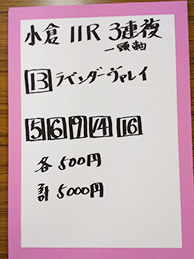 小倉 11R 3連複
一頭軸
13 ラベンダーヴァレイ
5 6 9 14 16
各500円
計5000円